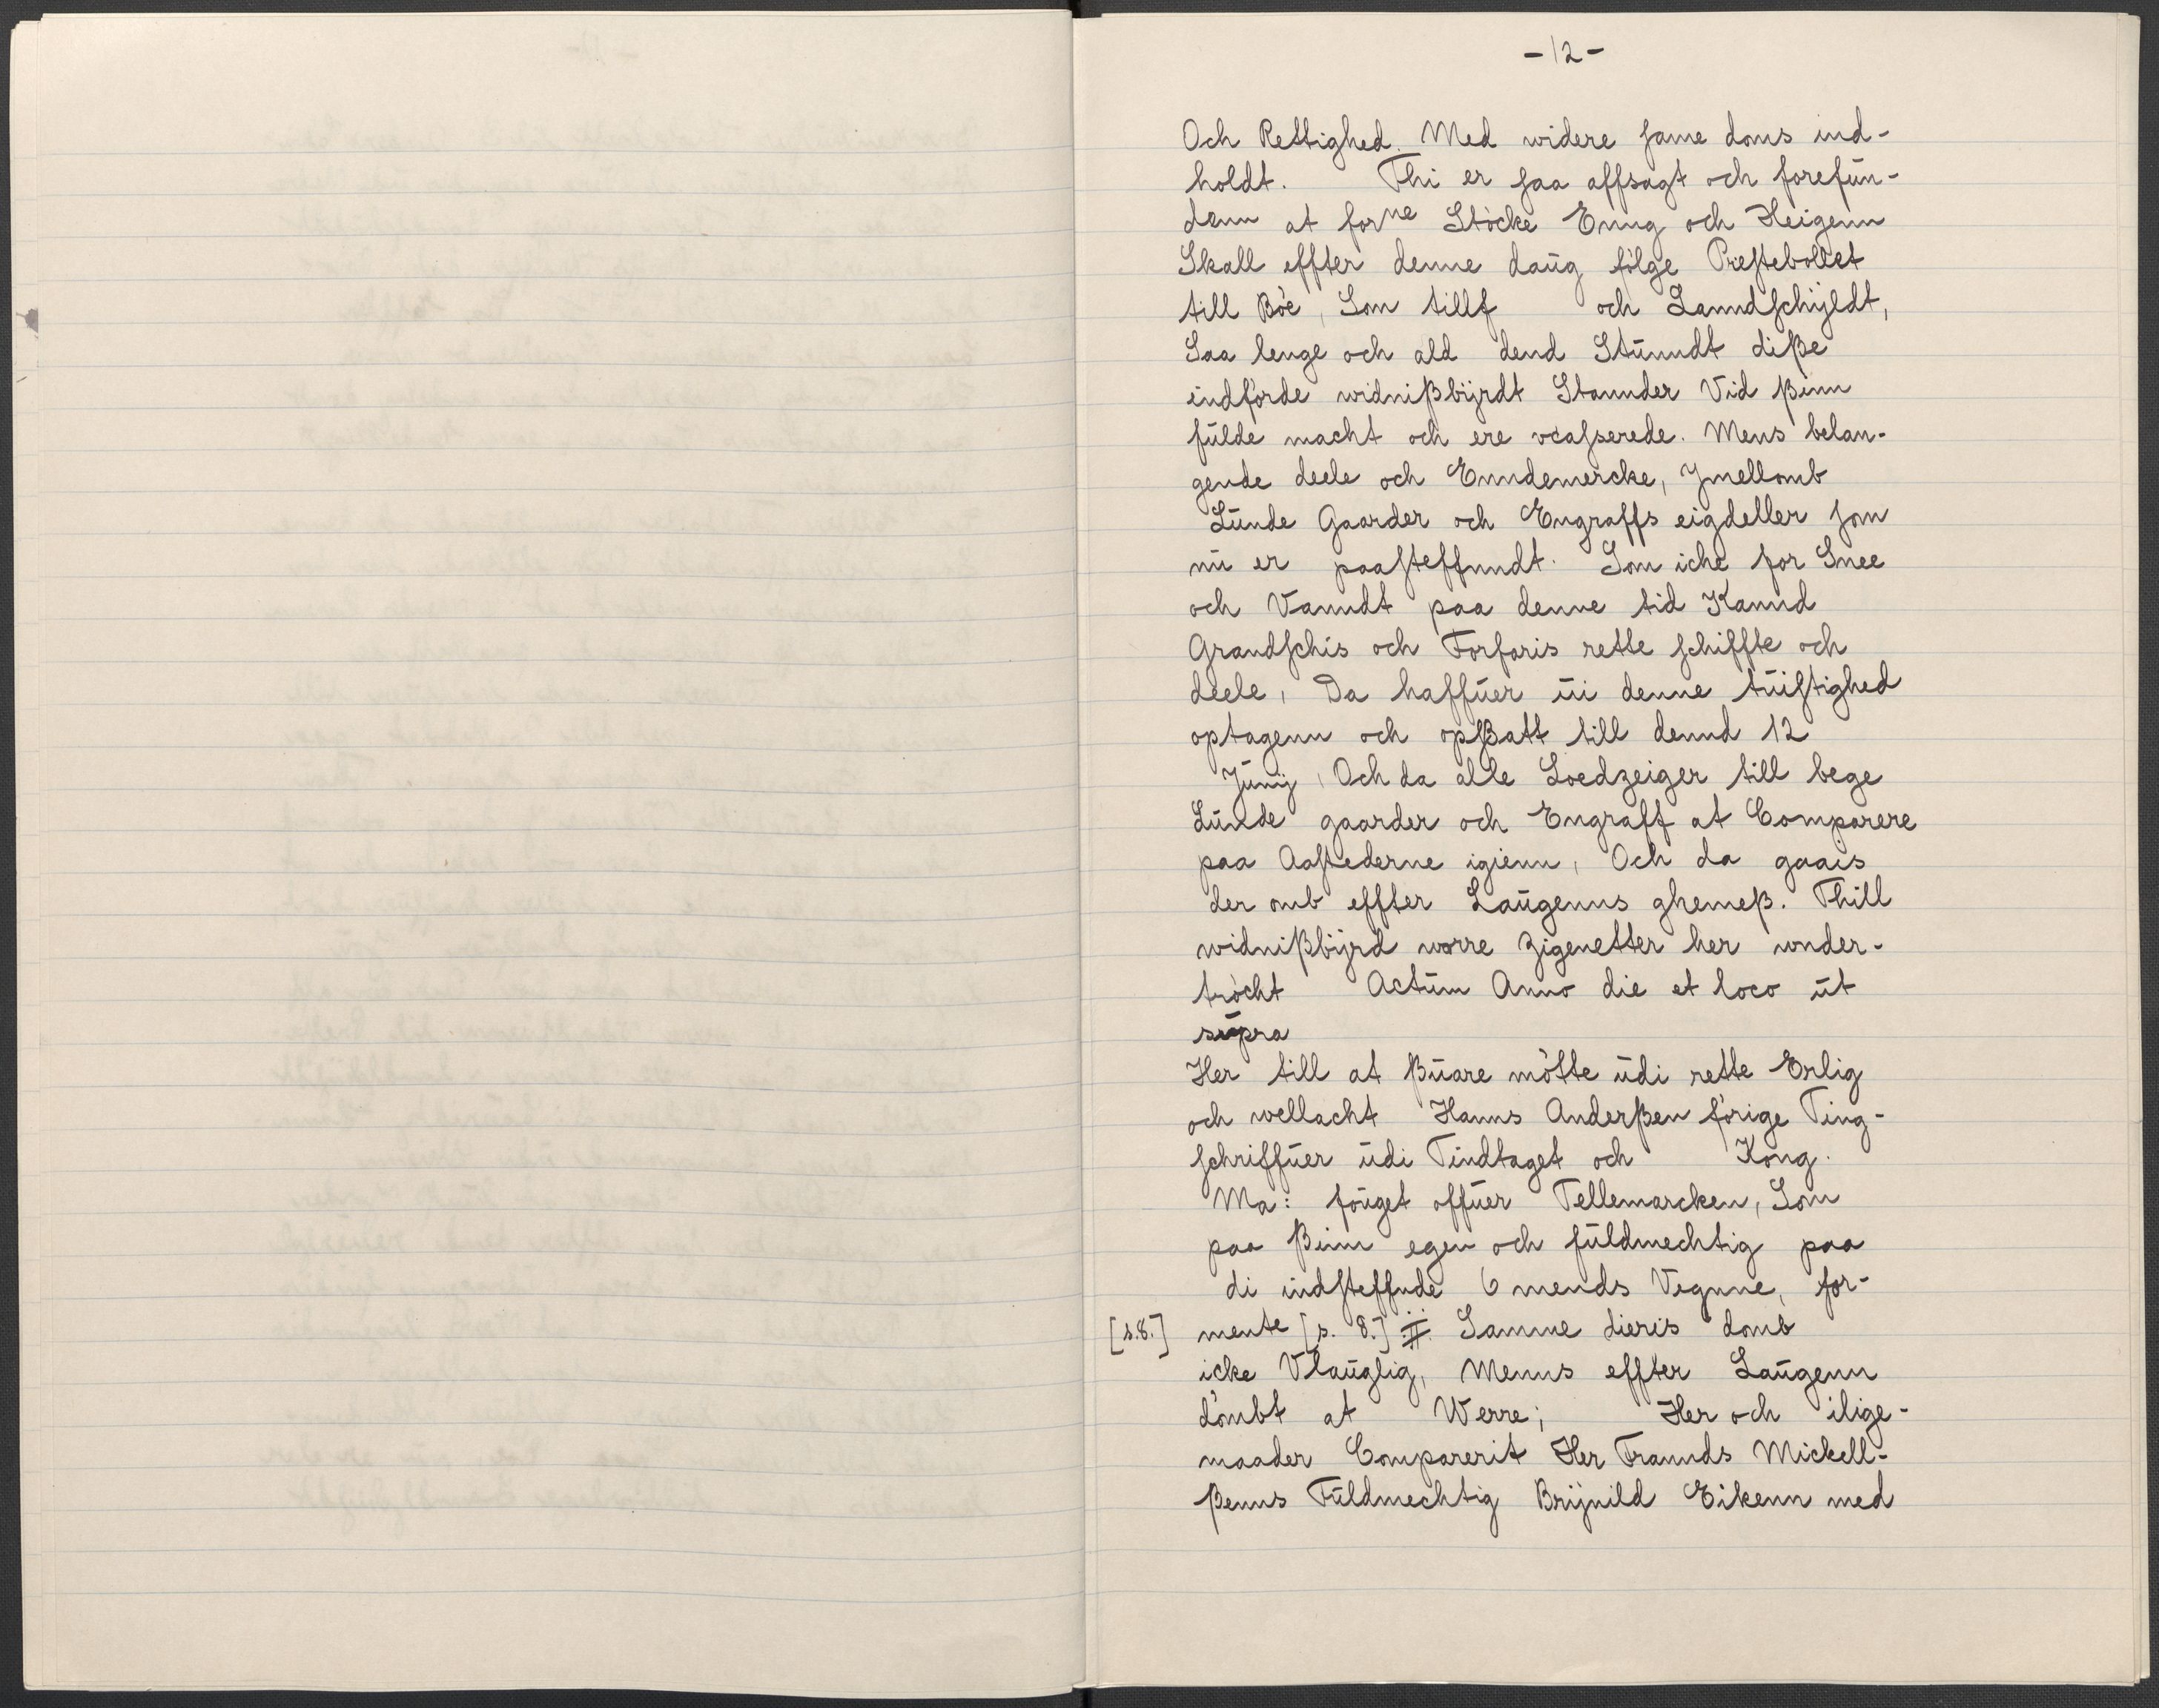 -12-
Och Rettighed. Med widere same doms ind-
holdt. Thi er saa affsagt och forefün-
denn at forne Stöcke Enng och Heigenn
Skall effter denne daüg fölge Prestebollet
till Böe, Som tillf och Lanndschÿldt,
Saa lenge och ald dend Stünndt diße
indförde widnißbÿrdt Stannder Vid ßinn
fülde macht och ere vcasserede. Mens belan-
gende deele och Enndemercke, Jmellomb
Lünde Gaarder och Engraffs eigdeller som
nü er paasteffnndt. Som iche for Snee
och Vanndt paa denne tid Kannd
Grandschis och Forfaris rette schiffte och
deele, Da haffüer üi denne tüistighed
optagenn och opßatt till dennd 12
Jünij, Och da alle Loedzeiger till bege
Lünde gaarder och Engraff at Comparere
paa Aastederne igienn, Och da gaais
der omb effter Laügenns ghemeß. Thill
widnißbÿrd worre Zigenetter her wnder-
tröcht Actüm Anno die et loco üt
süpra
Her till at ßüare mötte üdi rette Erlig
och wellacht Hanns Anderßen förige Ting-
schriffüer üdi Tindtaget och Kong.
Ma: foüget offüer Tellemarcken, Som
paa ßinn egen och füldmechtig paa
di indsteffnde 6 mends Vegnne, for-
[s.8.] mente [s. 8.] Samme dieris domb
icke Vlaüglig, Menns effter Laügenn
dömbt at Werre; Her och ilige-
maader Comparerit Her Frannds Mickell-
ßenns Füldmechtig Brÿnild Eikenn med